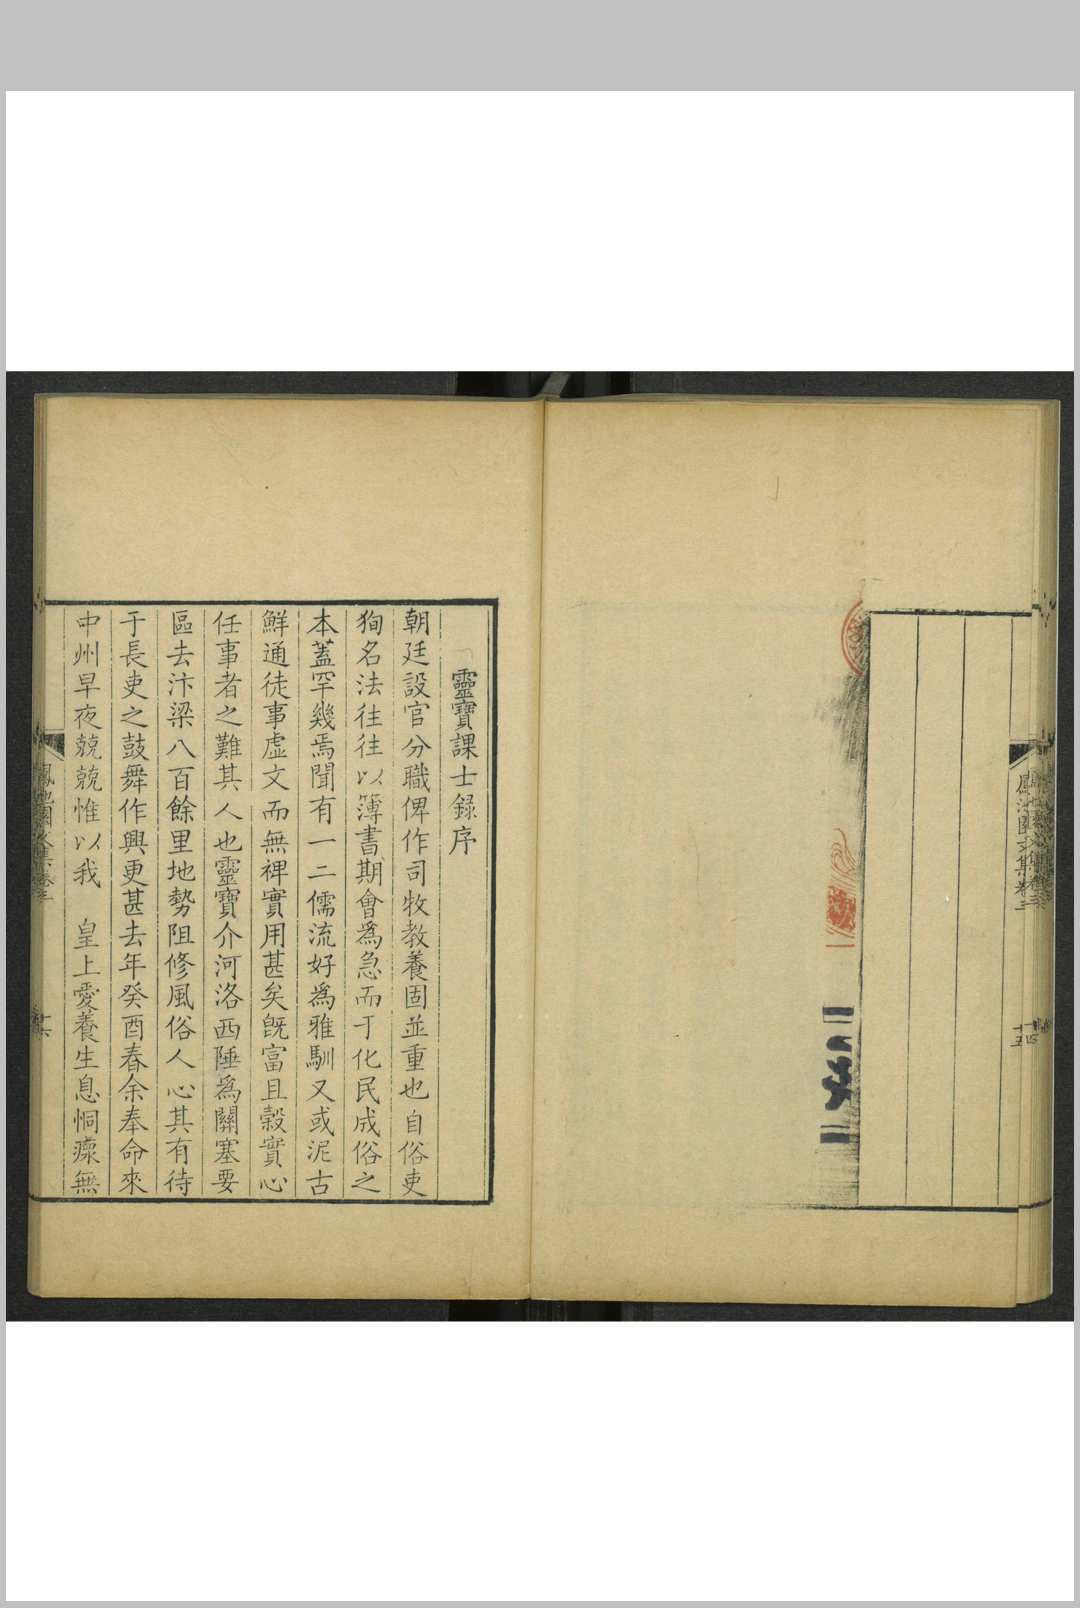 鳳池園文集卷三
十五
靈寶課士錄序
朝廷設官分職俾作司牧教養固並重也自俗吏
狥名法往往以簿書期會爲急而于化民成俗之
本蓋罕幾焉聞有一二儒流好爲雅馴又或泥古
鮮通徒事虛文而無裨實用甚矣旣富且穀實心
任事者之難其人也靈寶介河洛西陲爲關塞要
區去汴梁八百餘里地勢阻修風俗人心其有待
于長吏之鼓舞作興更甚去年癸酉春余奉命來
中州早夜兢兢惟以我　皇上愛養生息恫瘝無
鳳池園文集卷三
十六